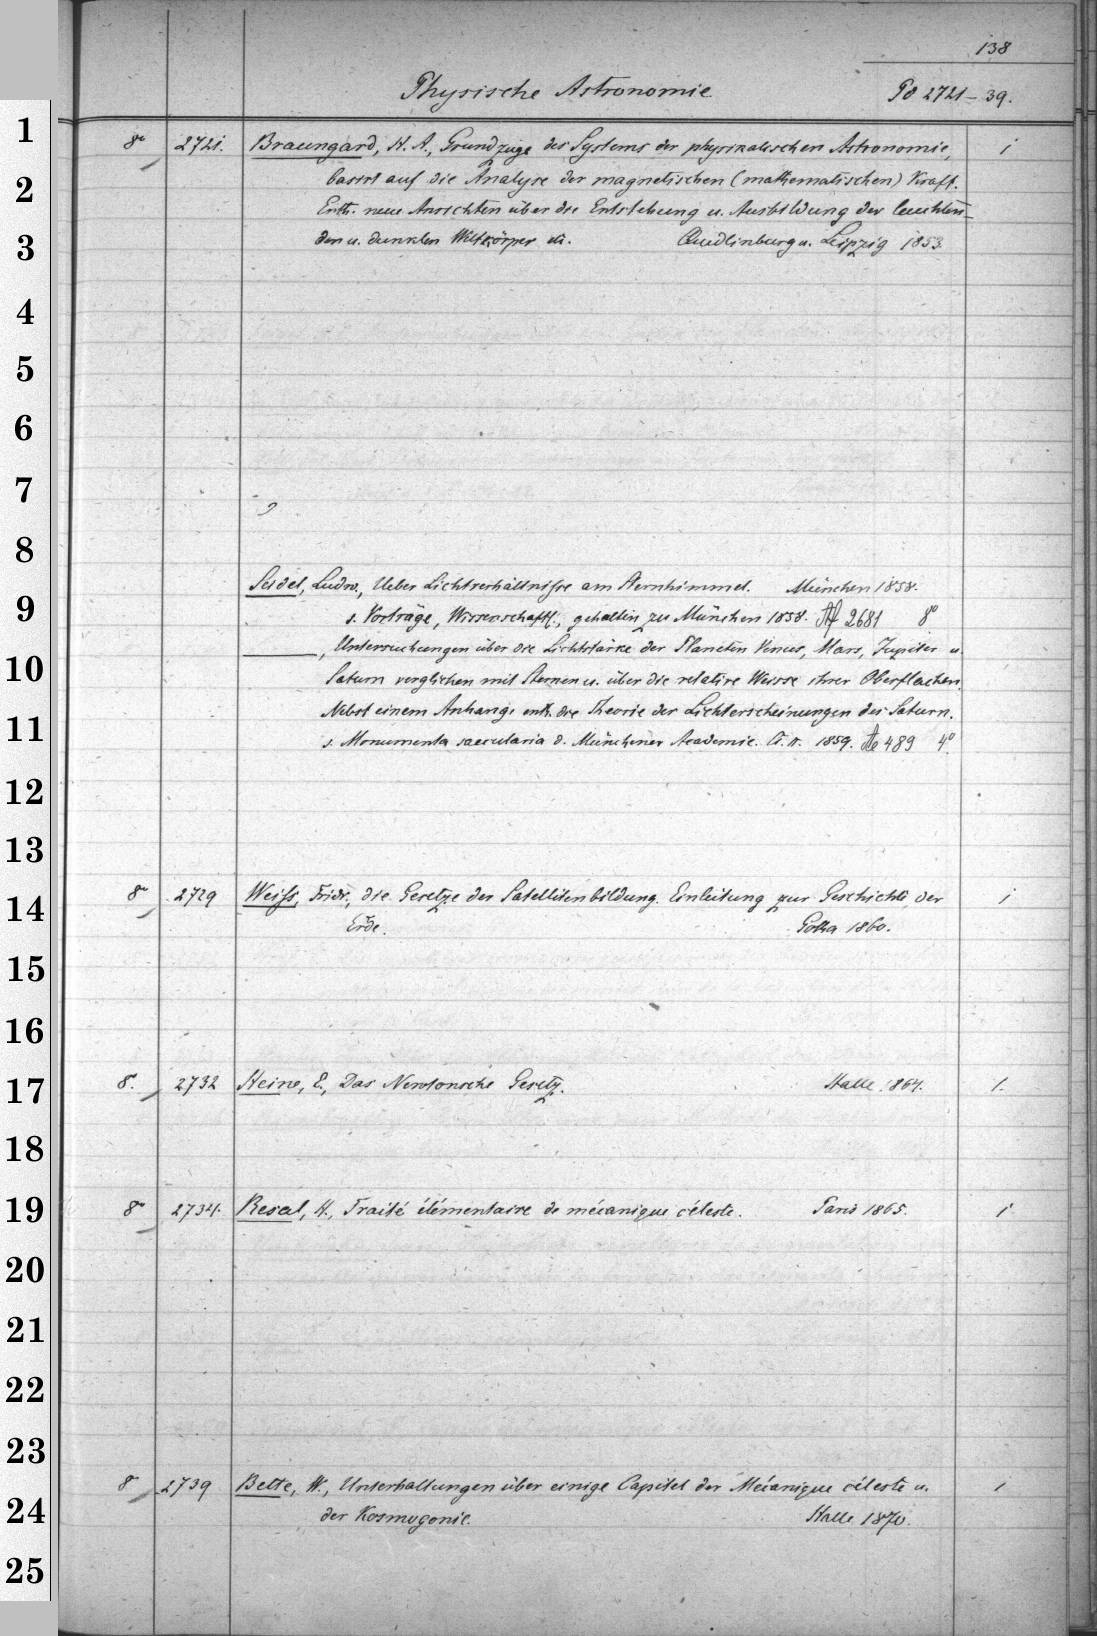 138
Physische Astronomie
Po 2721 – 39.
8º 2721. Braungard, H. A., Grundzüge des Systems der physikalischen Astronomie, 1
basirt auf die Analyse der magnetischen (mathematischen) Kraft.
Enth. neue Ansichten über die Entstehung u. Ausbildung der leuchten-
den u. dunklen Weltkörper etc. Quedlinburg u. Leipzig 1853.
Seidel, Ludw., Ueber Lichtverhältnisse am Sternhimmel. München 1858.
s. Vorträge, Wissenschaftl., gehalten zu München 1858. Af 2681 8º
———, Untersuchungen über die Lichtstärke der Planeten Venus, Mars, Jupiter u.
Saturn verglichen mit Sternen u. über die relative Weisse ihrer Oberflächen.
Nebst einem Anhang, enth. die Theorie der Lichterscheinungen des Saturn.
s. Monumenta saecularia d. Münchener Academie. Cl. II. 1859. Ae 489 4º
8º 2729 Weiss, Fridr., die Gesetze der Satellitenbildung. Einleitung zur Geschichte der 1
Erde. Gotha 1860.
8. 2732 Heine, E., Das Newtonsche Gesetz. Halle 1864. 1.
8º 2734. Resal, H., Traité élémentaire de mécanique céleste. Paris 1865. 1
8 2739 Bette, W., Unterhaltungen über einige Capitel der Mécanique céleste u. 1
der Kosmogonie. Halle 1870.
1
2
3
4
5
6
7
8
9
10
11
12
13
14
15
16
17
18
19
20
21
22
23
24
25